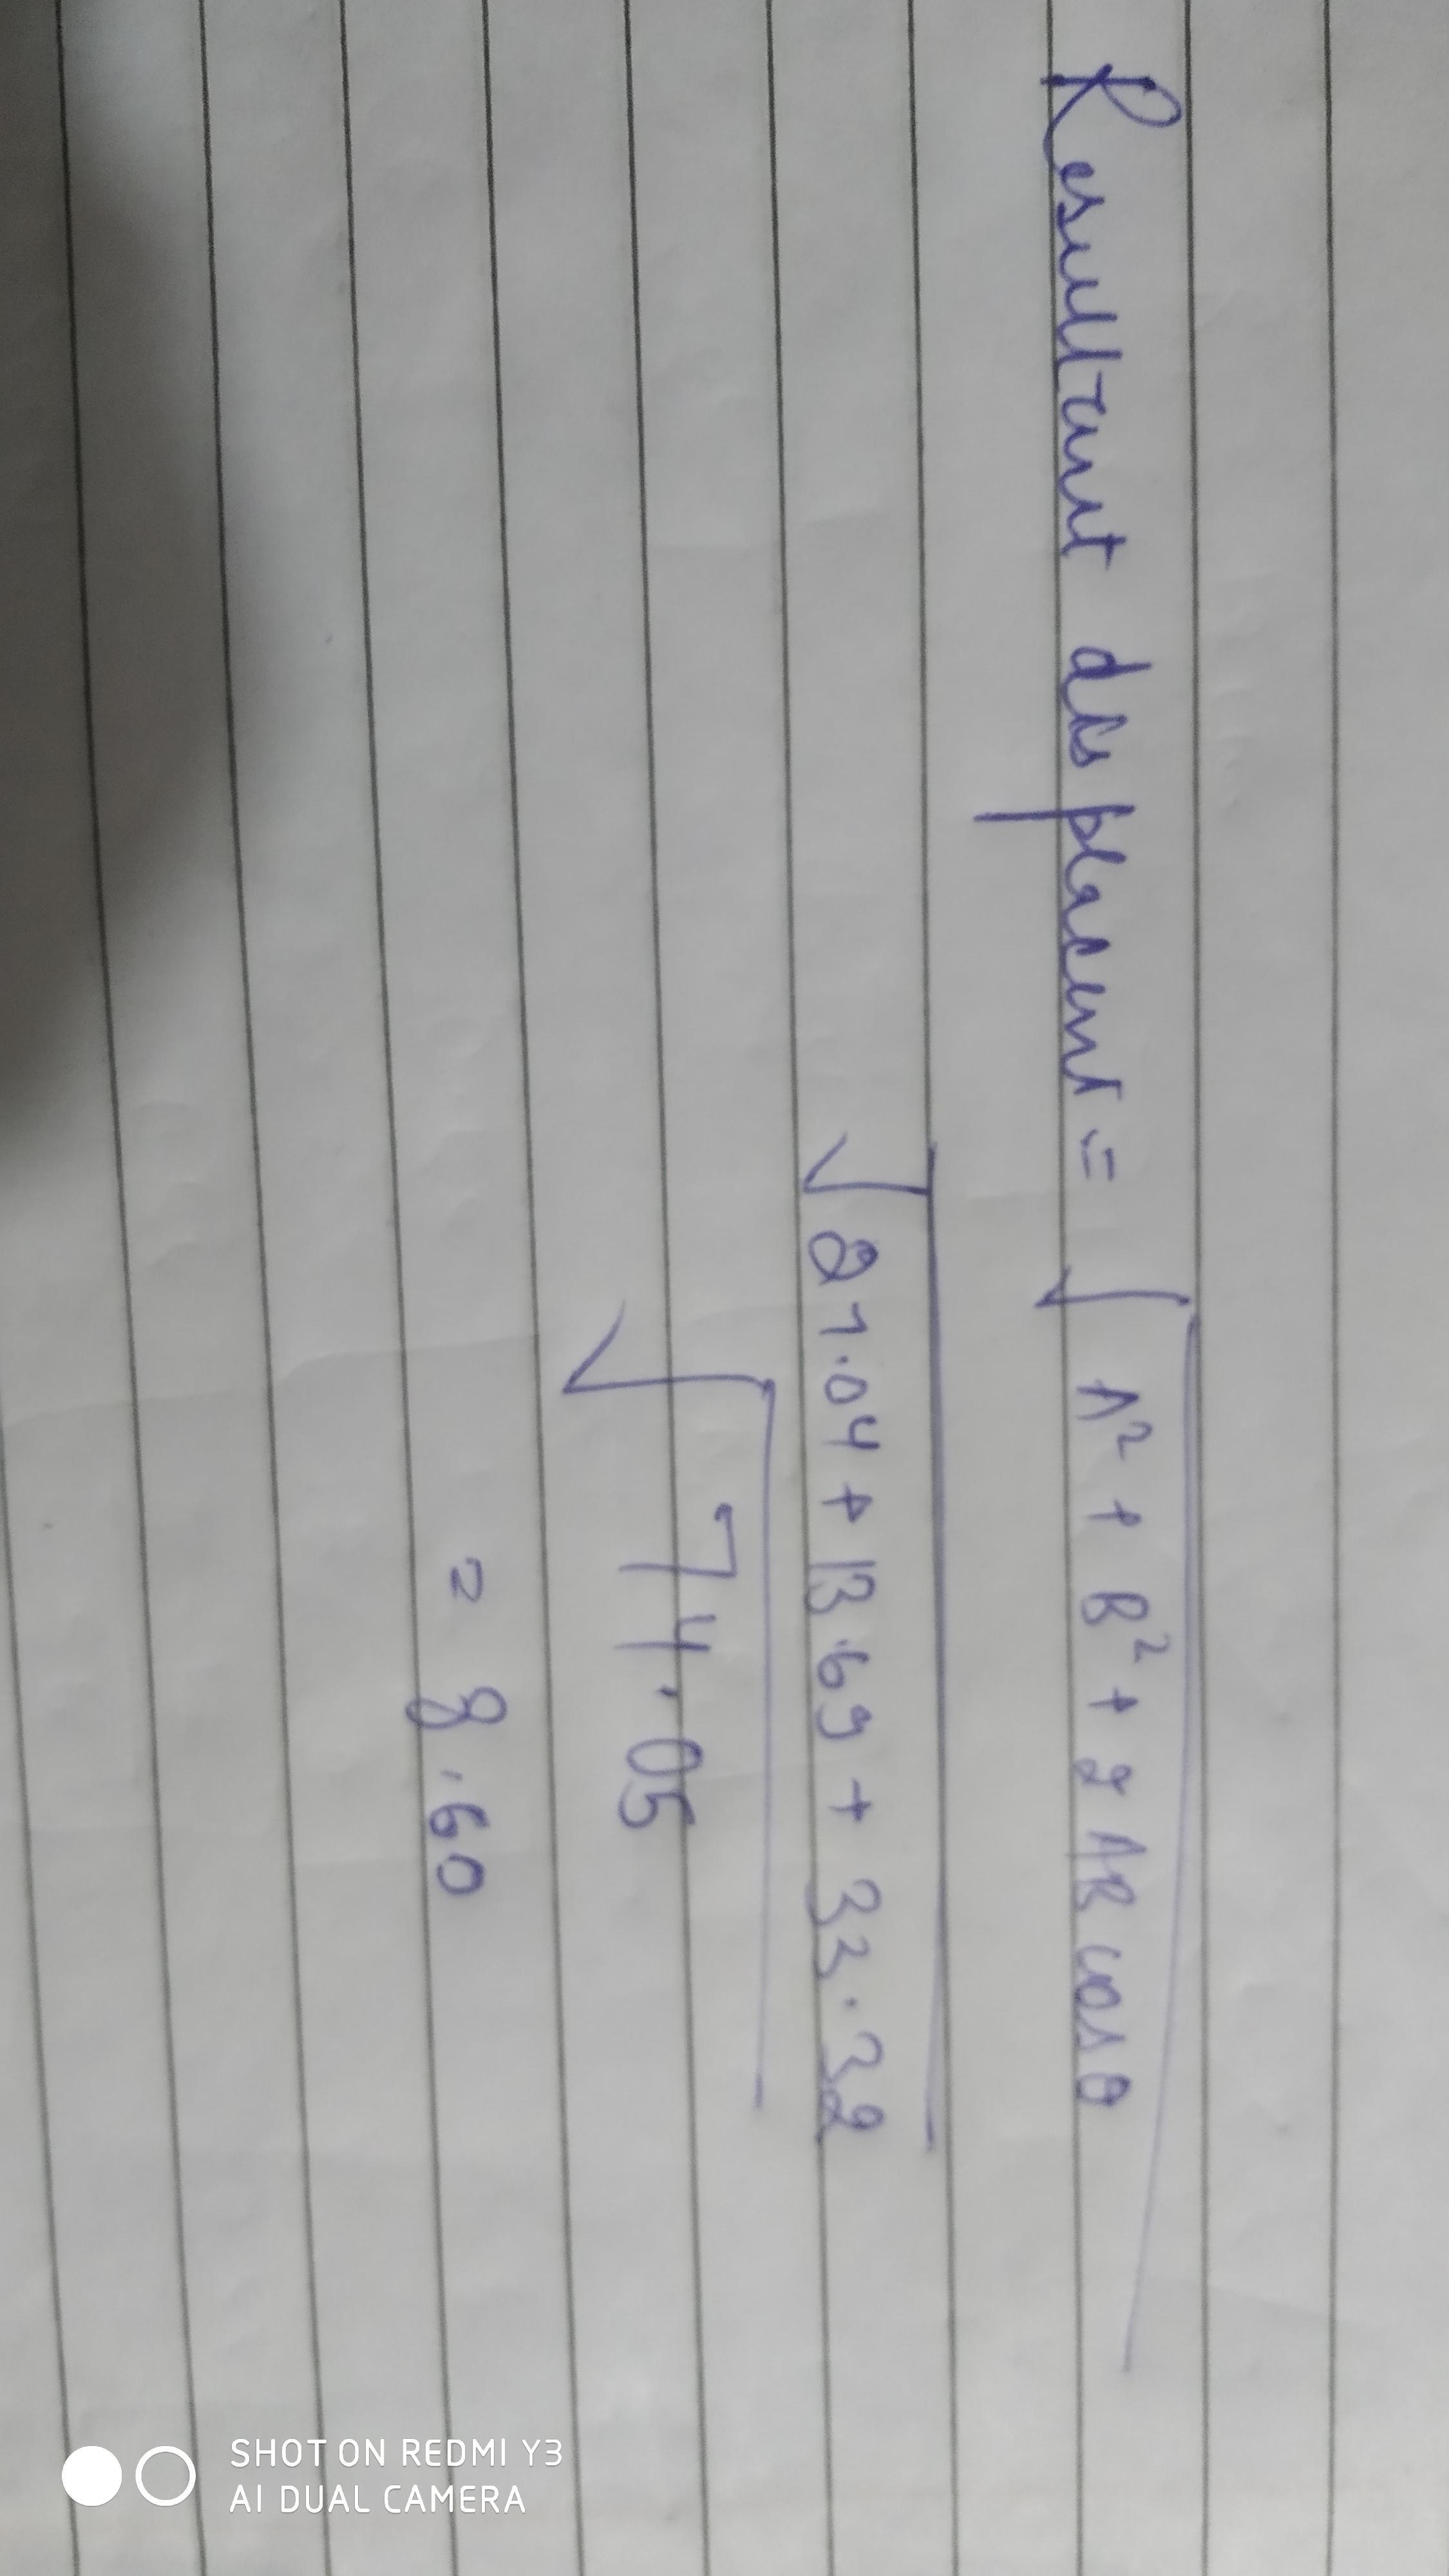 Resultant displacent = √A² + B² + 2AB cosθ
√27.04 + 13.69 + 33.32
√74.05
= 8.60
SHOT ON REDMI Y3
AI DUAL CAMERA